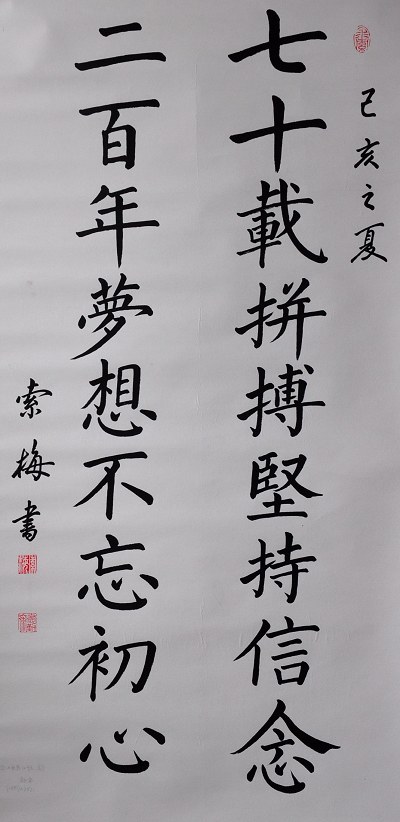 己亥之夏
七十載拼搏堅持信念
二百年夢想不忘初心
索梅书